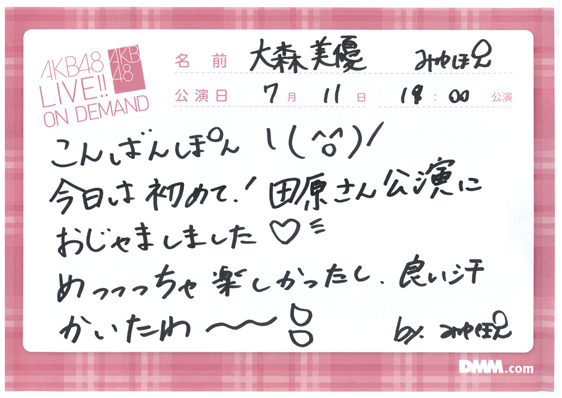 AKB48
LIVE!!
ON DEMAND
AKB
48
名前 大森美優 みゆぽん
公演日 7月11日 18:00 公演
こんばんぽん \(^o^)/
今日は初めて!田原さん公演に
おじゃましました♡
めっっっちゃ楽しかったし、良い汗
かいたわ〜!!
by. みゆぽん
DMM.com